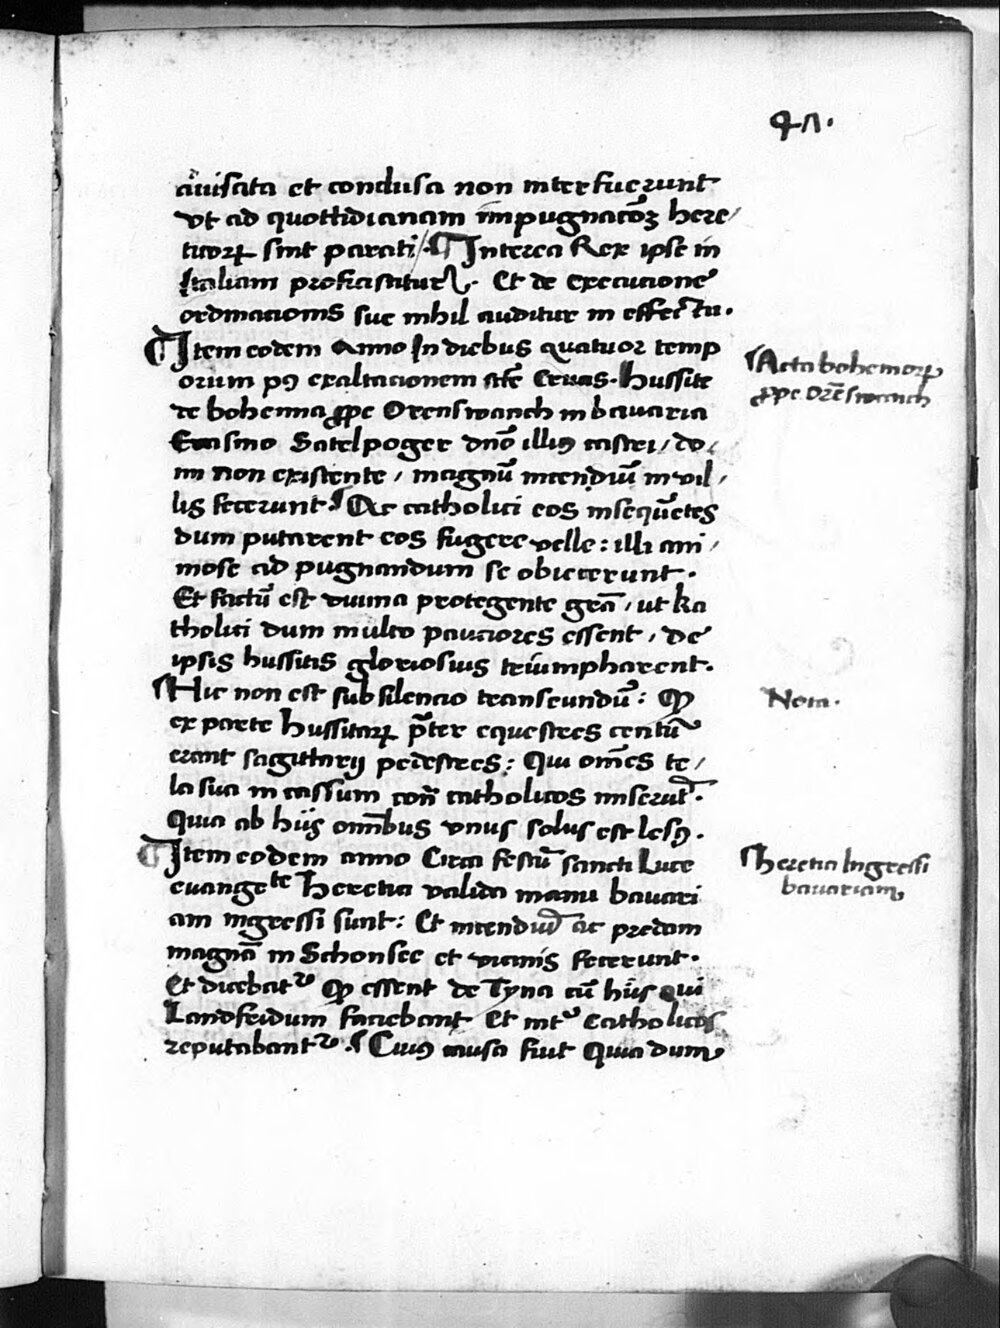 47.
auisata et conclusa non interfuerunt
vt ad quottidianam impugnacōȝ here/
ticorꝝ sint parati / ¶ Interea Rex ipse in
Italiam proficiscitur. Et de execucione
ordinacionis sue nihil auditur in effectu.
¶ Item eodem Anno In diebus quatuor temp
orum pꝰ exaltacionem scte Crucis. Hussite
de bohemia ꝓpe Orenswanch in bauaria
Erasmo Satelpoger dnō illiꝰ castri / do/
mi non existente / magnū incendiū in vil/
lis fecerunt. Ac catholici eos insequētes
dum putarent eos fugere velle: illi ani/
mose ad pugnandum se obiecerunt.
Et factū est diuina protegente grā / ut ka
tholici dum multo pauciores essent / de
ipsis hussitis gloriosius triumpharent.
Hic non est sub silencio transeundū: Ꝙ
ex parte hussitarꝝ p̄ter equestres centū
erant sagittarij pedestres: Qui om̄es te/
la sua in cassum con̄ catholicos miserūt.
Quia ab hijs omībus vnus solus est lesꝰ.
¶ Item eodem anno Circa festū sancti Luce
euangeˡᵗᵉ Heretici valida manu bauari
am ingressi sunt: Et incendiū ac predam
magnā in Schonsee et vicinis fecerunt.
Et dicebātʳ Ꝙ essent de Tyna cū hijs qui
Landfridum faciebant Et intʳ Catholicos
reputabantʳ. Cuiꝰ causa fuit Quia dum
Acta bohemorꝝ
ꝓpe Orēswanch
Nota.
Heretici Ingressi
bauariam